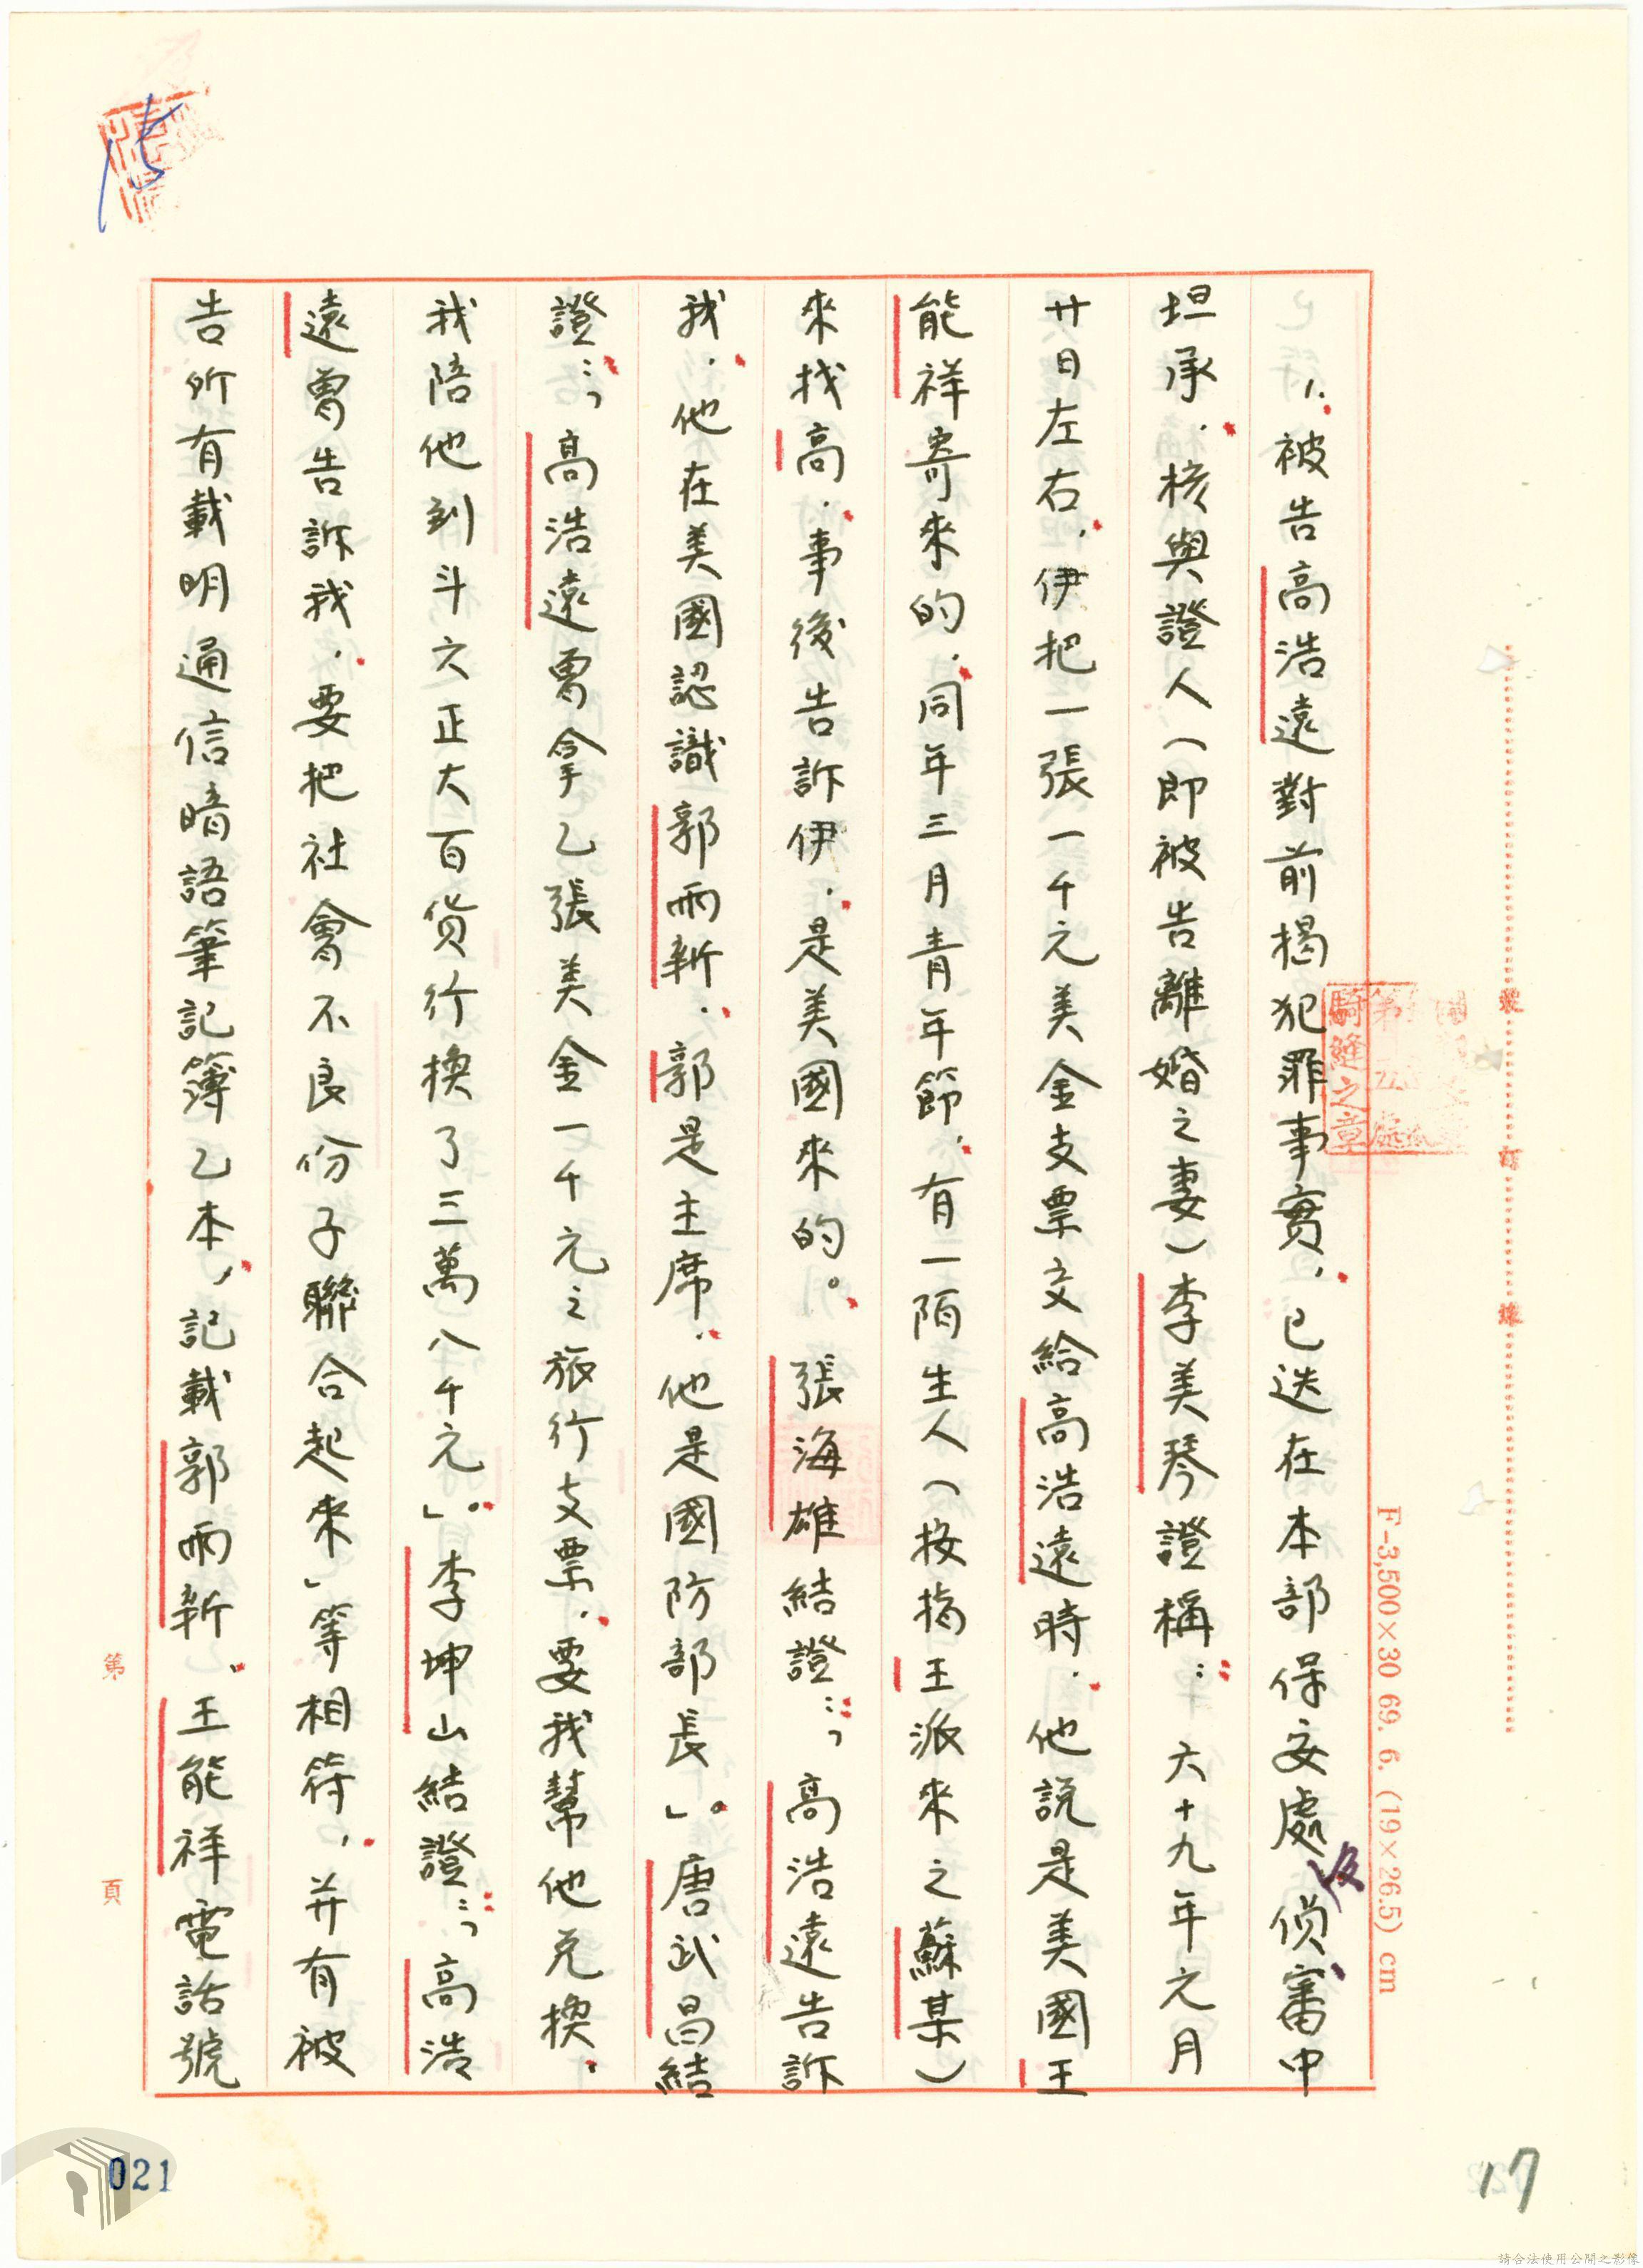 1.被告高浩遠對前揭犯罪事實,已迭在本部保安處後偵審中
坦承,核與證人(即被告離婚之妻)李美琴證稱:六十九年元月
廿日左右,伊把一張一千元美金支票交給高浩遠時,他說是美國王
能祥寄來的,同年三月青年節,有一陌生人(按指王派來之蘇某)
來找高,事後告訴伊,是美國來的。張海雄結證:「高浩遠告訴
我,他在美國認識郭雨新,郭是主席,他是國防部長」。唐武昌結
證:「高浩遠曾拿乙張美金一千元之旅行支票,要我幫他兌換,
我陪他到斗六正大百貨行換了三萬八千元」。李坤山結證:「高浩
遠曾告訴我,要把社會不良份子聯合起來」等相符,并有被
告所有載明通信暗語筆記簿乙本,記載郭雨新、王能祥電話號
第 頁
裝 訂 線
F-3,500×30 69. 6. (19×26.5) cm
騎縫之章
021
17
請合法使用公開之影像